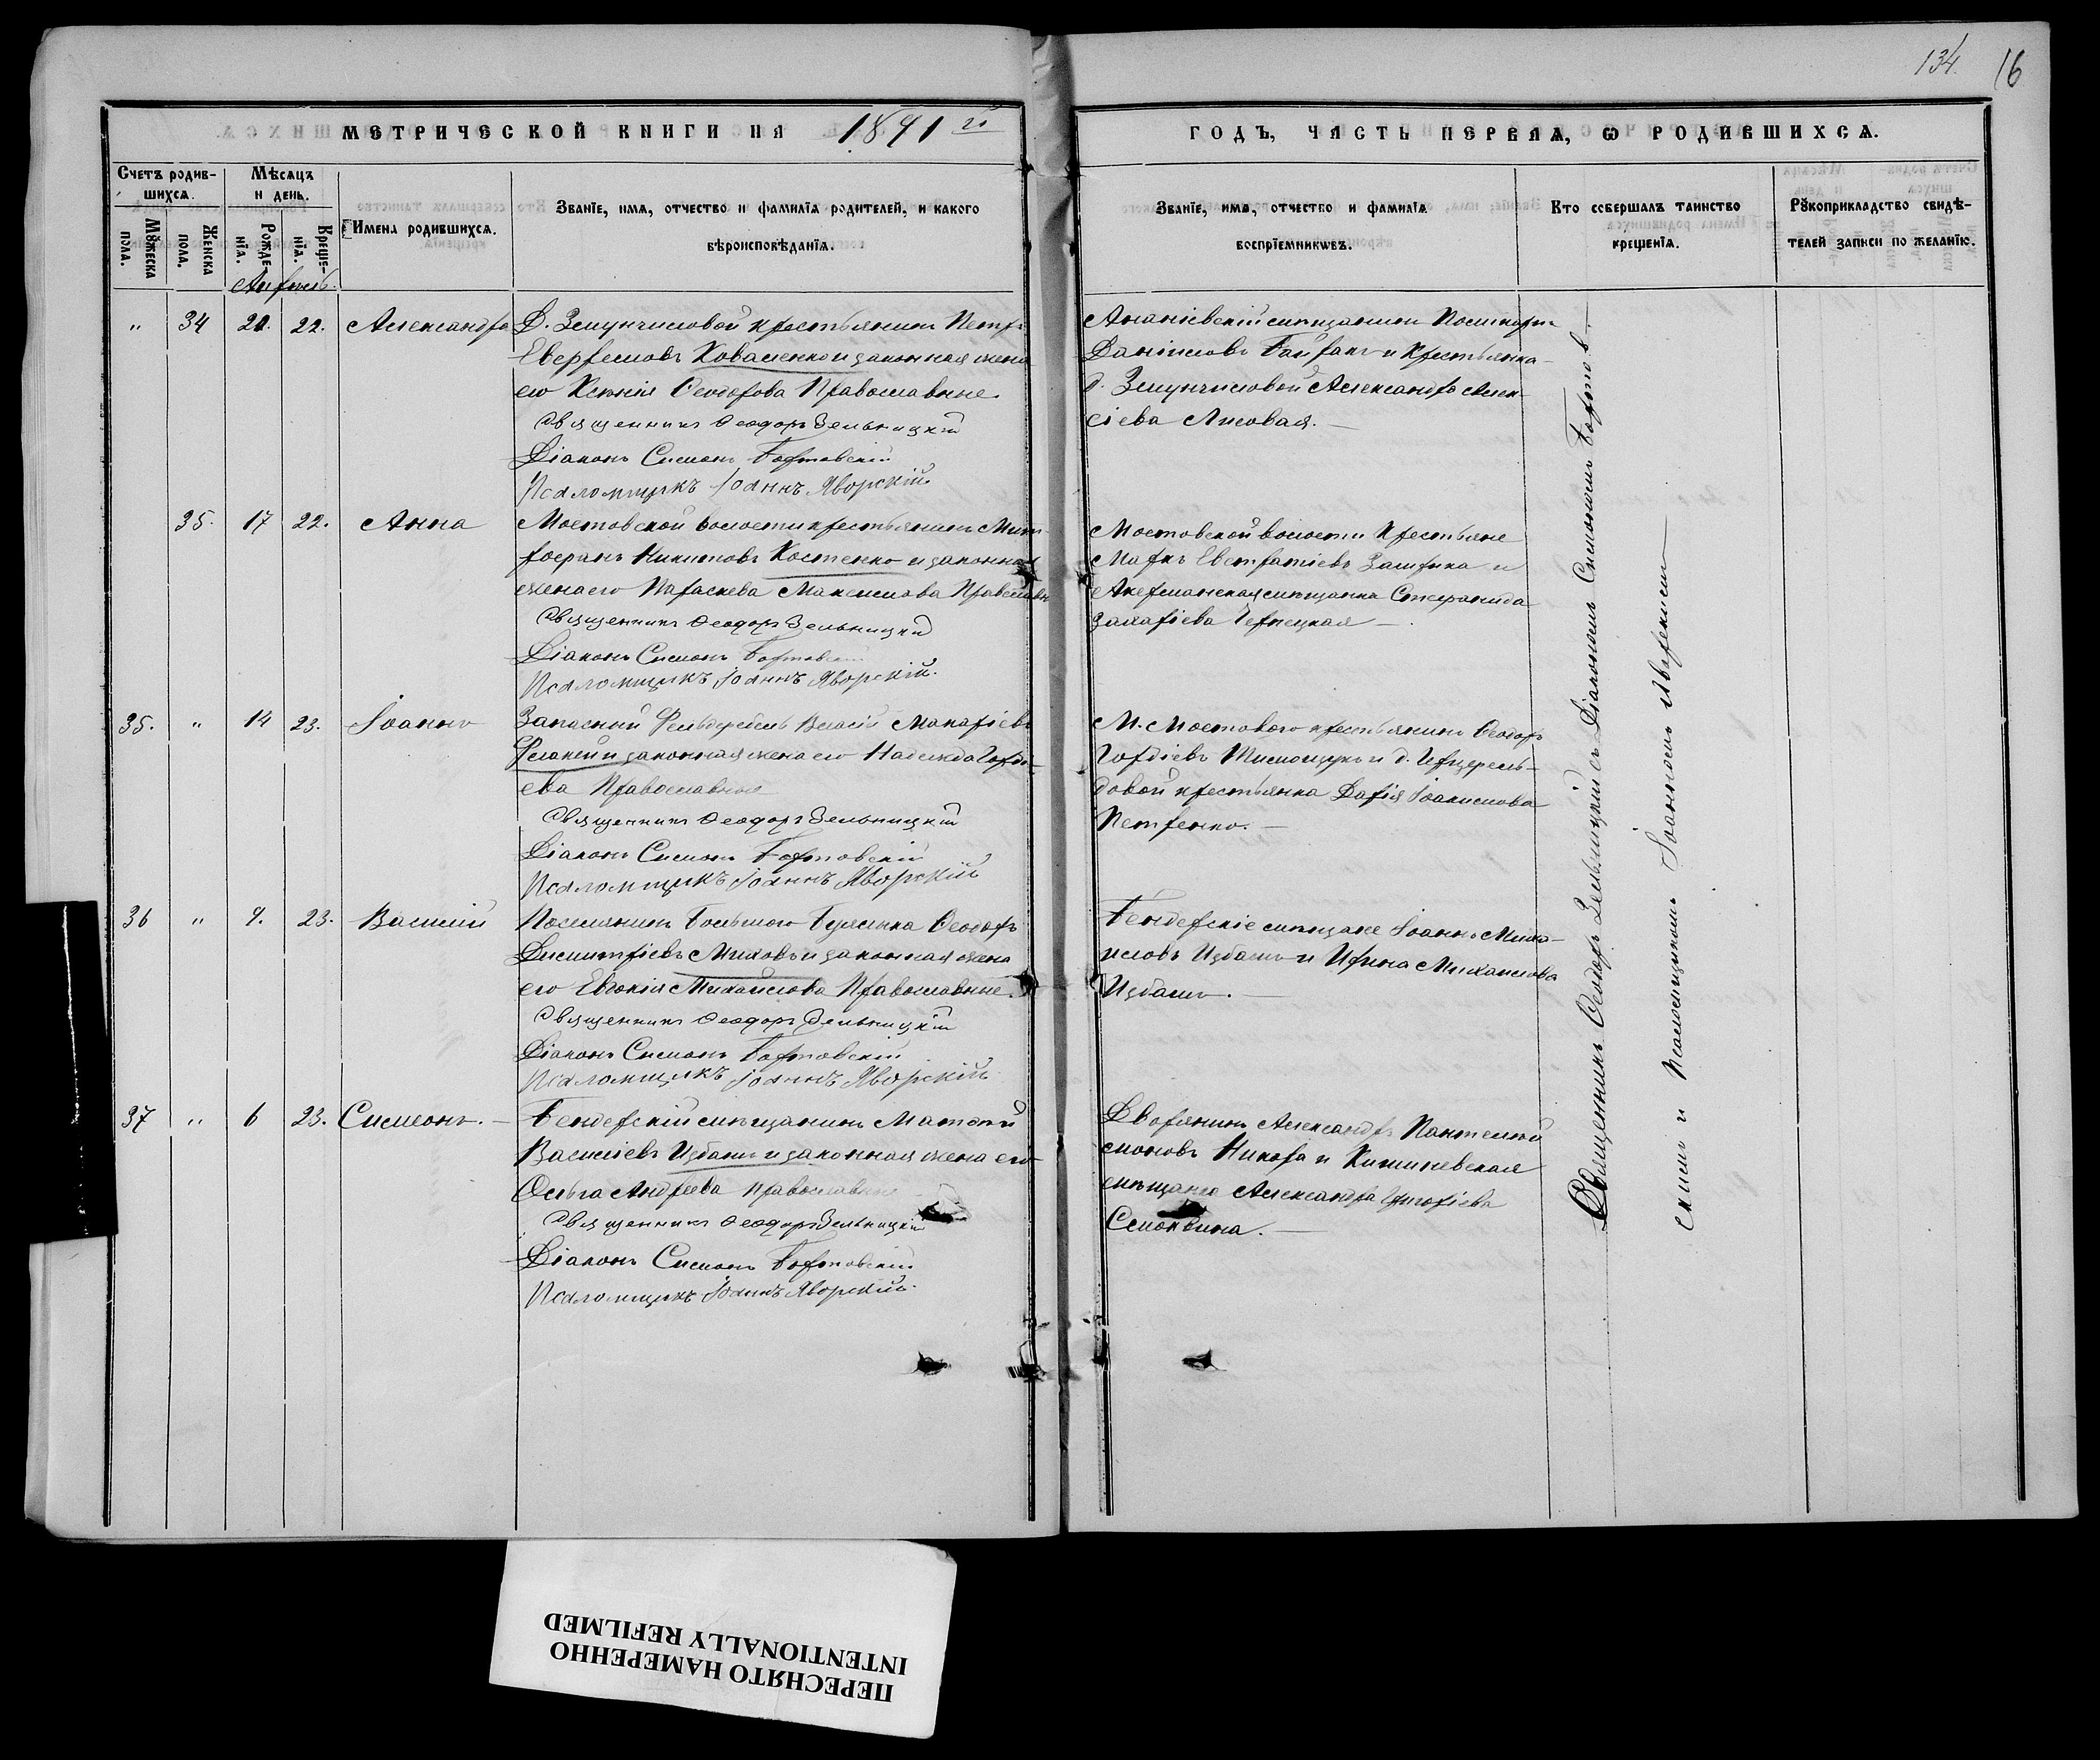 134. 16
МЕТРИЧЕСКОЙ КНИГИ НА 1891 й ГОДЪ, ЧАСТЬ ПЕРВАѦ, Ѡ РОДИВШИХСѦ.
Счетъ родив-
шихсѧ.
Мꙋжеска
пола.
Женска
пола.
Мѣсѧцъ
и день.
Рожде-
нїѧ.
Креще-
нїѧ.
Имена родившихсѧ.
Званїе, имѧ, отчество и фамилїѧ родителей, и какого
вѣроисповѣданїѧ.
Званїе, имѧ, отчество и фамилїѧ
воспрїемникѡвъ.
Кто совершалъ таинство
крещенїѧ.
Рꙋкоприкладство свидѣ-
телей записи по желанїю.
Апрѣль.
" 34 20. 22. Александра Д. Змунчиловой крестьянинъ Петръ
Коваленко и законная жена
его Ксенія Ѳеодорова Православные.
Священникъ Ѳеодоръ Зельницкій
Діаконъ Симеонъ Бортовскій
Псаломщикъ Іоаннъ Яворскій.
Ананіевскій мѣщанинъ
Даніиловъ Байракъ и крестьянка
д. Змунчиловой Александра Алек-
сіева Лисовая. —
35. 17 22. Анна Мостовской волости крестьянинъ Мит-
рофанъ Никитовъ Костенко и законная
жена его Параскева Максимова Православн.
Священникъ Ѳеодоръ Зельницкій
Діаконъ Симеонъ Бортовскій
Псаломщикъ Іоаннъ Яворскій.
Мостовской волости крестьяне
Маркъ Евстратіевъ и
Акерманская мѣщанка Стефанида
Захаріева —
35. " 14 23. Іоаннъ Запасный Фельдфебель Власій Макаріевъ
и законная жена его Надежда Горді-
ева Православные
Священникъ Ѳеодоръ Зельницкій
Діаконъ Симеонъ Бортовскій
Псаломщикъ Іоаннъ Яворскій
М. Мостового крестьянинъ Ѳеодоръ
Гордіевъ и д.
довой крестьянка Дарія Іоакимова
Петренко. —
36 " 9. 23. Василій Поселянинъ Большого Буялыка Ѳеодоръ
Димитріевъ Миховъ и законная жена
его Евгенія Михайлова Православные.
Священникъ Ѳеодоръ Зельницкій
Діаконъ Симеонъ Бортовскій
Псаломщикъ Іоаннъ Яворскій
Бендерскіе мѣщане Іоаннъ Миха-
иловъ Избашъ и Ирина Михаилова
Избашъ. —
37 " 6 23. Симеонъ. — Бендерскій мѣщанинъ Матѳей
Василіевъ Избашъ и законная жена его
Ольга Андреева православные
Священникъ Ѳеодоръ Зельницкій
Діаконъ Симеонъ Бортовскій
Псаломщикъ Іоаннъ Яворскій.
Дворянинъ Александръ Пантелей-
моновъ Никора и Кишиневская
мѣщанка Александра Григоріева
—
Священникъ Ѳеодоръ Зельницкій съ Діакономъ Симеономъ Бортов-
скимъ и Псаломщикомъ Іоанномъ Яворскимъ —
ПЕРЕСНЯТО НАМЕРЕННО
INTENTIONALLY REFILMED